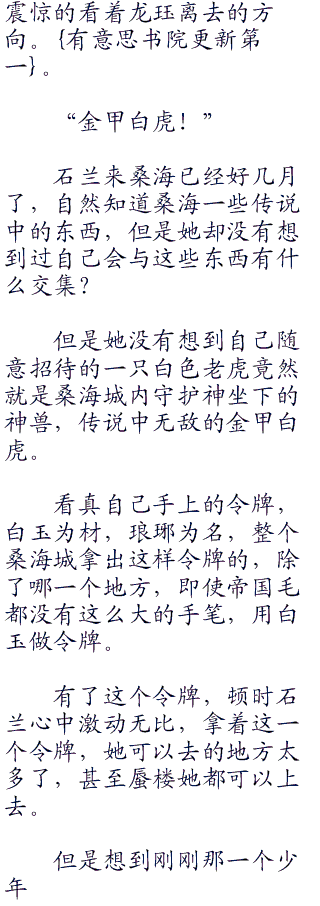 震惊的看着龙珏离去的方
向。{有意思书院更新第
一}。
“金甲白虎！”
石兰来桑海已经好几月
了，自然知道桑海一些传说
中的东西，但是她却没有想
到过自己会与这些东西有什
么交集？
但是她没有想到自己随
意招待的一只白色老虎竟然
就是桑海城内守护神坐下的
神兽，传说中无敌的金甲白
虎。
看真自己手上的令牌，
白玉为材，琅琊为名，整个
桑海城拿出这样令牌的，除
了哪一个地方，即使帝国毛
都没有这么大的手笔，用白
玉做令牌。
有了这个令牌，顿时石
兰心中激动无比，拿着这一
个令牌，她可以去的地方太
多了，甚至蜃楼她都可以上
去。
但是想到刚刚那一个少
年